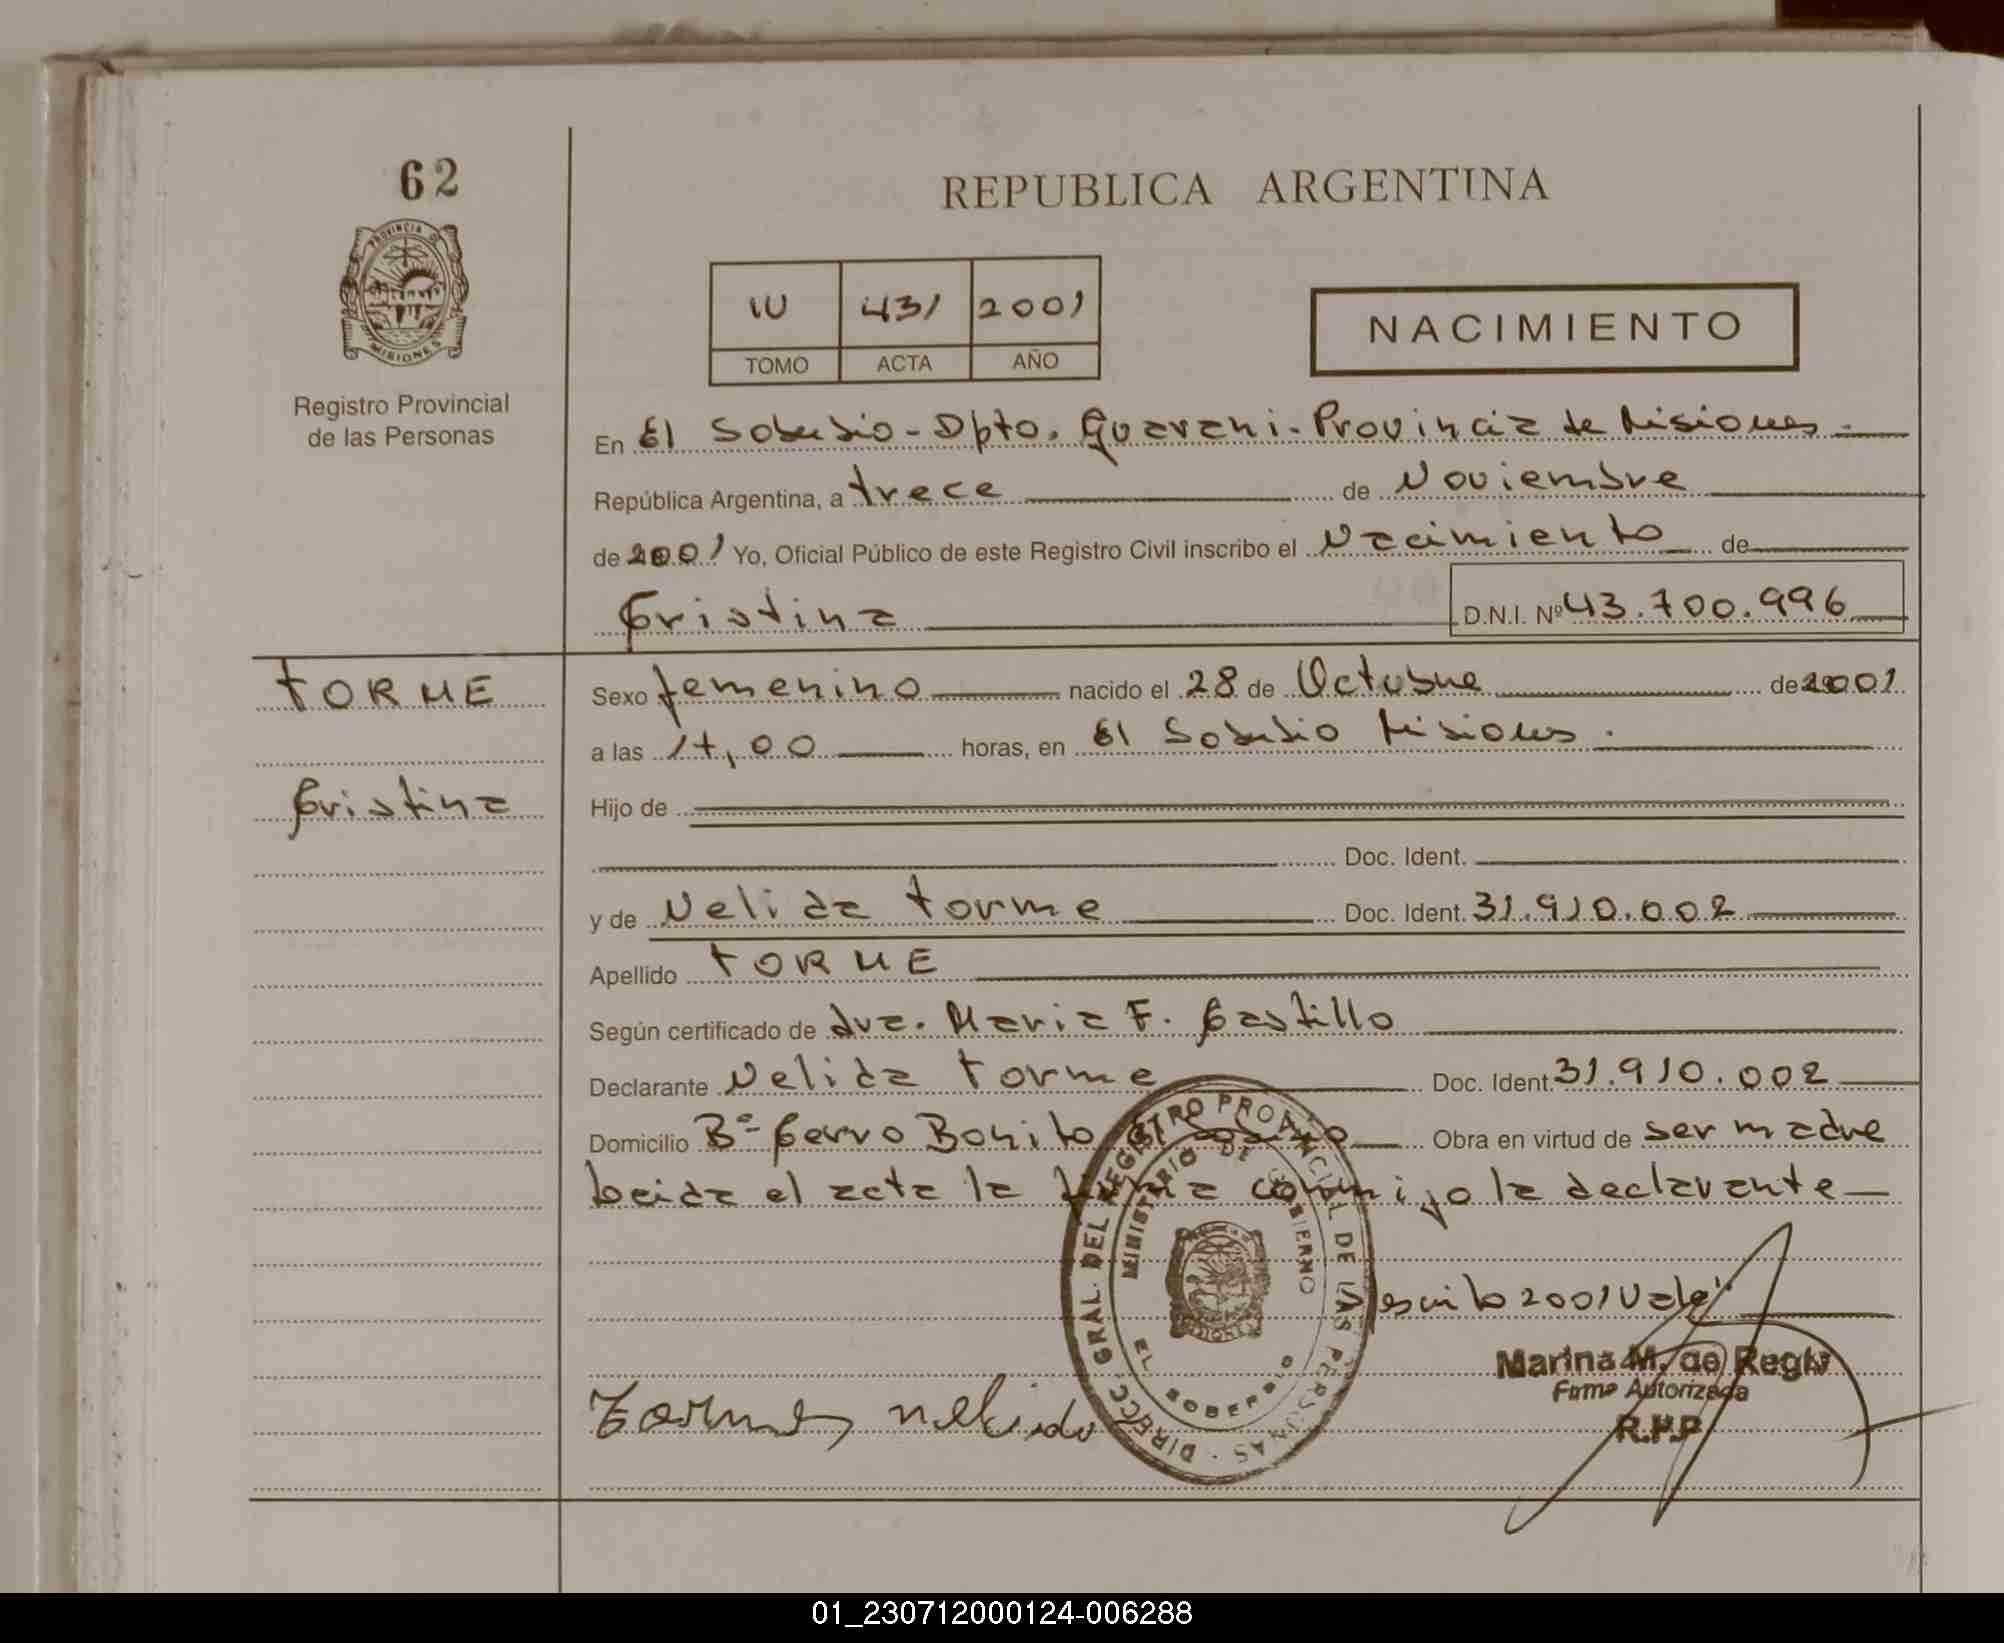 62
PROVINCIA DE
MISIONES
Registro Provincial
de las Personas
REPUBLICA ARGENTINA
IV 431 2001
TOMO ACTA AÑO
NACIMIENTO
En El Soberbio - Dpto. Guarani - Provincia de Misiones.
República Argentina, a trece de Noviembre
de 2001 Yo, Oficial Público de este Registro Civil inscribo el Nacimiento de
Cristina D.N.I. Nº 43.700.996
TORME
Cristina
Sexo femenino nacido el 28 de Octubre de 2001
a las 17,00 horas, en El Soberbio Misiones.
Hijo de
Doc. Ident.
y de Nelida Torme Doc. Ident. 31.910.002
Apellido TORME
Según certificado de dra. Maria F. Castillo
Declarante Nelida Torme Doc. Ident. 31.910.002
Domicilio Bº Cerro Bonito El Sob. Obra en virtud de ser madre
Leida el acta la firma conmigo la declarante
DIRECC. GRAL. DEL REGISTRO PROVINCIAL DE LAS PERSONAS
MINISTERIO DE GOBIERNO
EL SOBERBIO
MISIONES
escrito 2001 Vale
Marina M. de Regiv
Firma Autorizada
R.P.P
Torme nelida
01_230712000124-006288